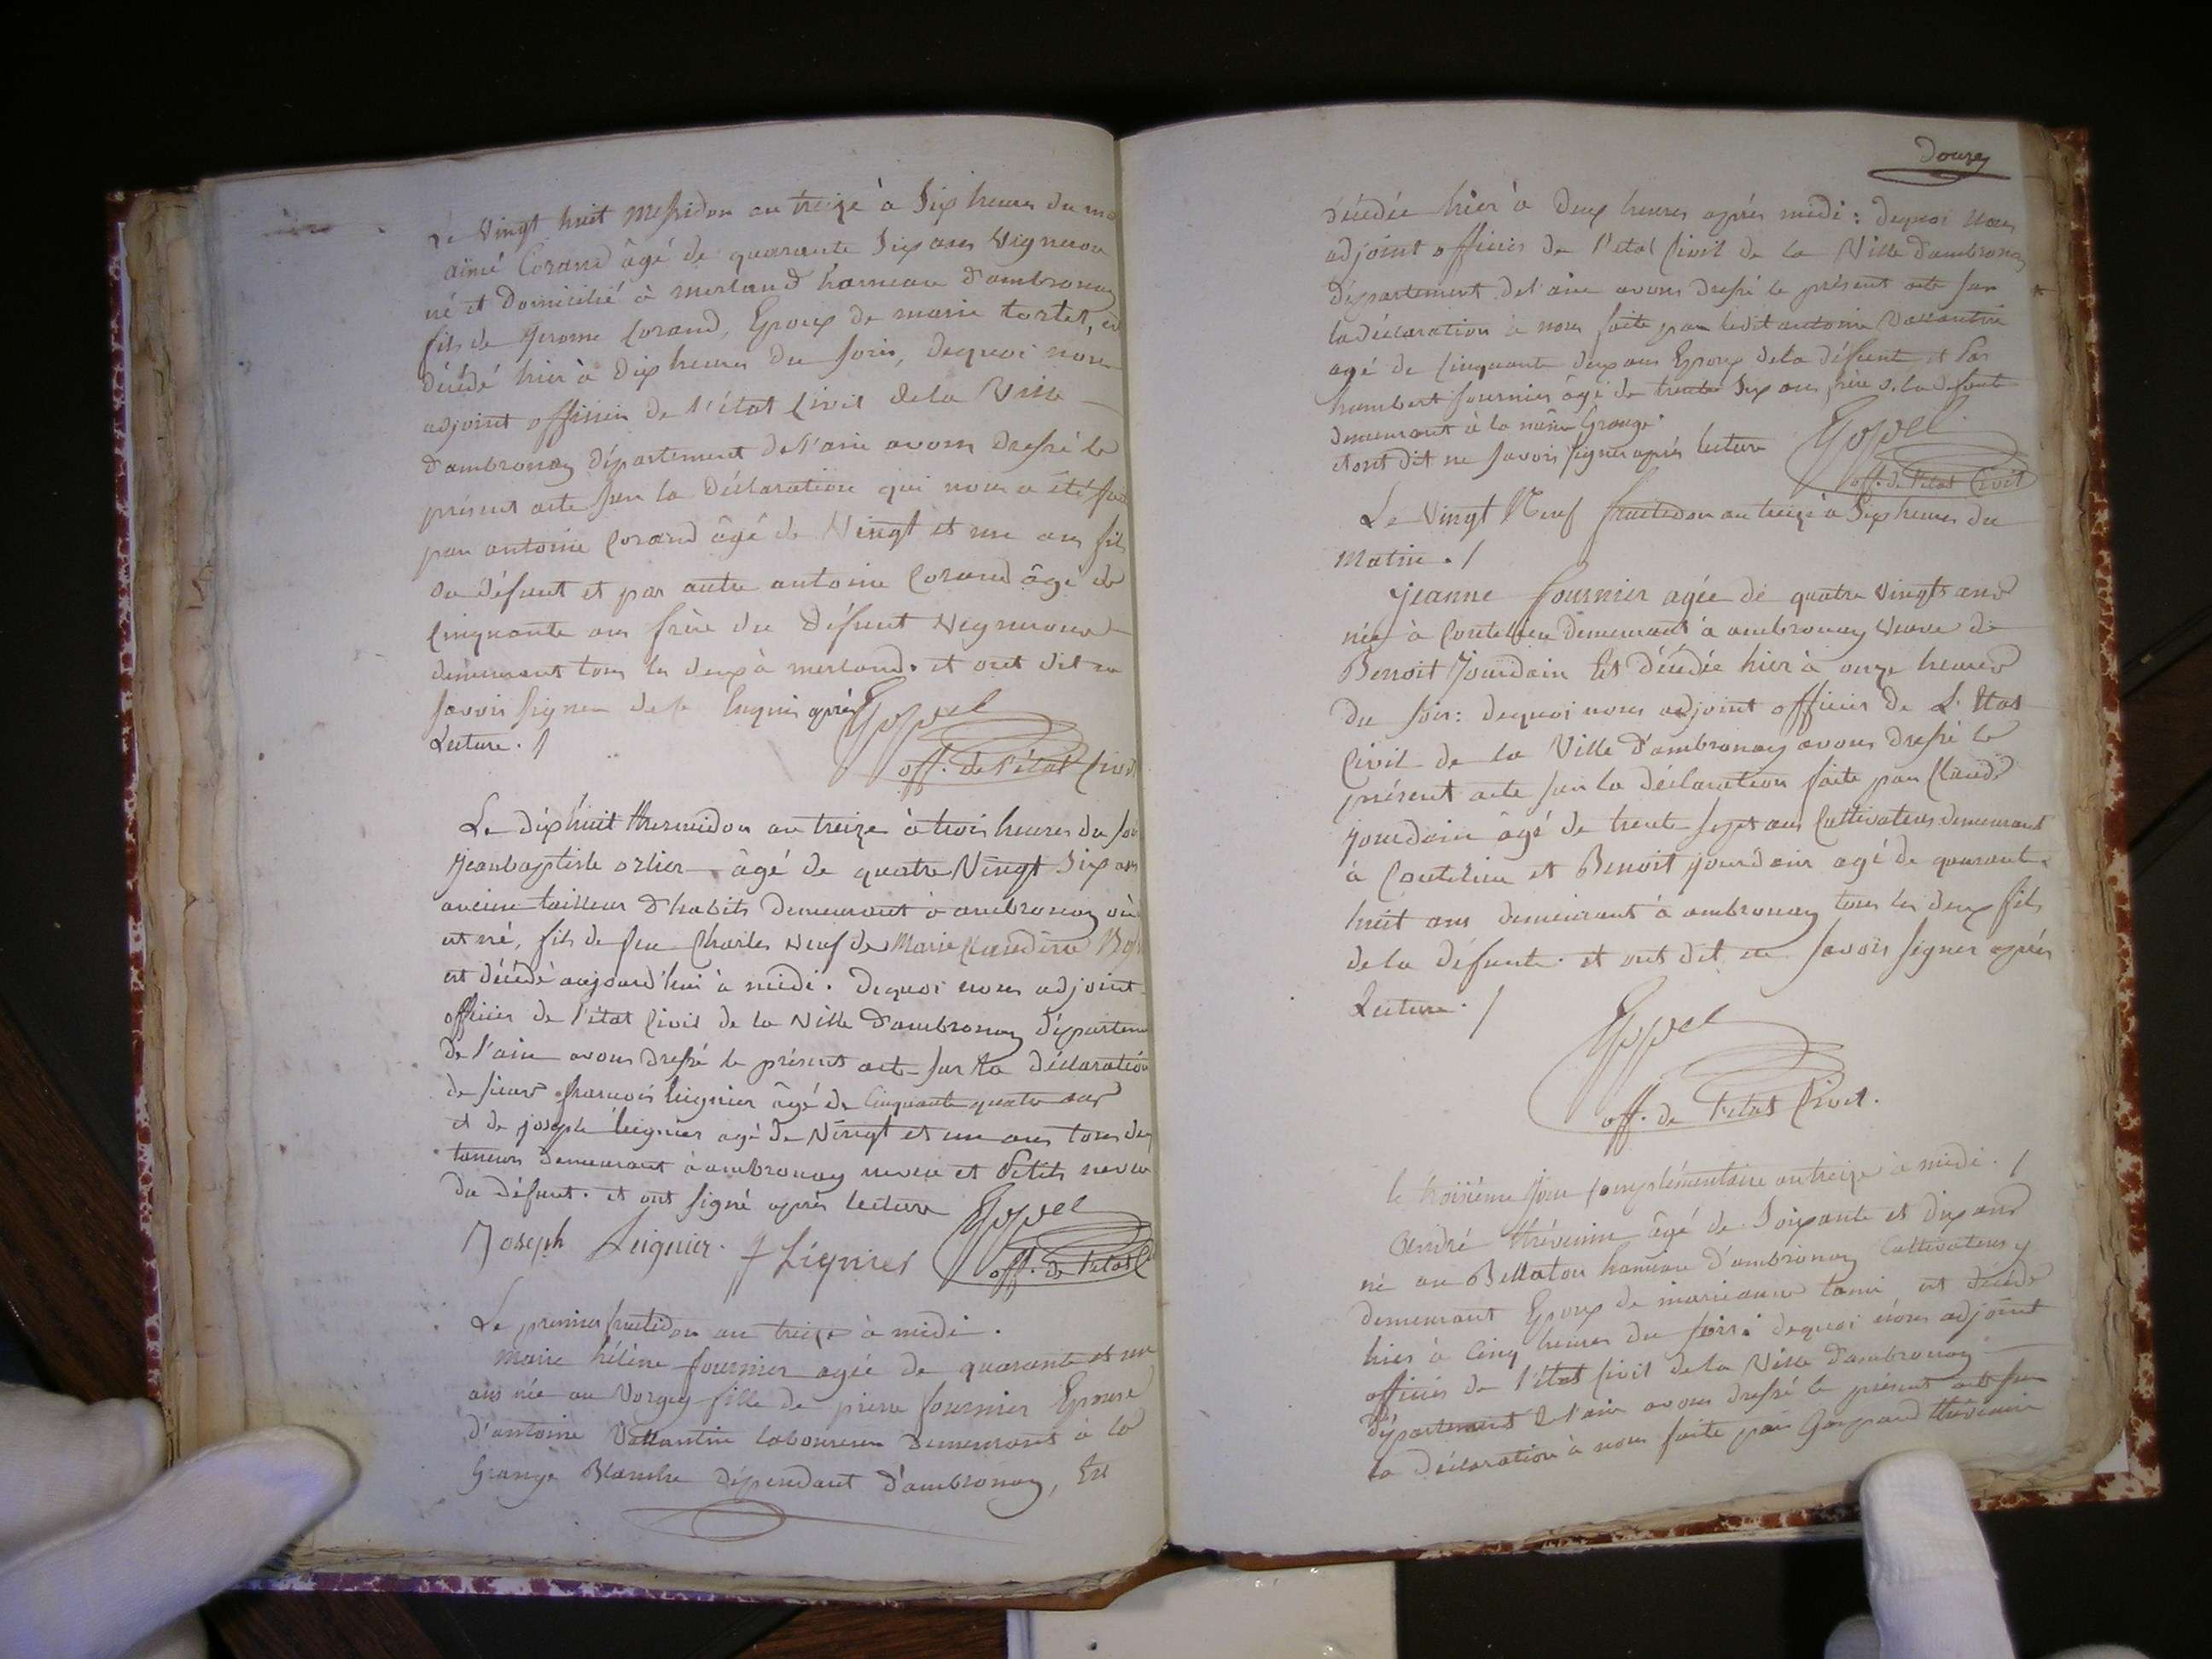 Le Vingt huit Messidor an treize à Six heures du ma
aimé Corand âgé de quarante Six ans Vigneron
né et domicilié à merland hameau d'ambronay
fils de Jerome Corand, Epoux de marie tortet, est
décédé hier à dix heures du soir, dequoi nous
adjoint officier de l'état Civil dela Ville
d'ambronay département de l'ain avons dressé le
présent acte sur la déclaration qui nous a été fa
par antoine Corand âgé de Vingt et un ans fils
du défunt et par autre antoine Corand âgé de
Cinquante ans frère du défunt Vigneron
demeurant tous les deux à merland. et ont dit ne
savoir signer de ce enquis après
Lecture. /
off. de l'état Civil
Le dixhuit thermidor an treize à trois heures du soi
Jeanbaptiste orlier âgé de quatre Vingt Six ans
ancien tailleur d'habits demeurant à ambronay où
est né, fils de feu Charles veuf de Marie Claudine
est décédé aujourd'hui à midi. Dequoi nous adjoint
officier de l'état Civil de la Ville d'ambronay départem
de l'ain avons dressé le présent acte sur la déclaration
de sieur françois Leignier âgé de Cinquante quatre ans
et de joseph Leignier agé de Vingt et un ans tous deux
taneurs demeurant à ambronay neveu et Petit neveu
du défunt. et ont signé après lecture
Joseph Leignier. f Lignier
off. de l'etat C
Le premier fructidor an treize à midi.
Marie hélène fournier agée de quarante et un
ans née au Vorgey fille de pierre fournier Epouse
d'antoine Vallantin laboureur demeurant à la
Grange Blanche dépendant d'ambronay, Est
Douze
décédée hier à deux heures après midi: dequoi nous
adjoint officier de l'etat Civil de la Ville d'ambronay
département del'ain avons dressé le présent acte sur
la déclaration à nous faite par ledit antoine Vallantin
agé de Cinquante deux ans Epoux dela défunte et Par
humbert fournier âgé de trente Six ans frère de la defunte
demeurant à la même Grange.
et ont dit ne savoir signer après lecture
off. de l'etat Civil
Le Vingt Neuf fructidor an treize à Six heures du
Matin. /
Jeanne fournier agée de quatre Vingts ans
née à Coutelieu demeurant à ambronay Veuve de
Benoit Jourdain Est décédée hier à onze heures
du soir: dequoi nous adjoint officier de L'Etat
Civil de la Ville d'ambronay avons dressé le
présent acte sur la déclaration faite par Claude
Jourdain âgé de trente sept ans Cultivateur demeurant
à Coutelieu et Benoit Jourdain agé de quarante
huit ans demeurant à ambronay tous les deux fils
de la défunte. et ont dit ne savoir signer après
Lecture. /
off. de l'etat Civil.
le troisième Jour Complémentaire an treize à midi. /
André thévenin âgé de Soixante et dix ans
né au Bellaton hameau d'ambronay Cultivateur y
demeurant Epoux de marieanne tami est décédé
hier à Cinq heures du soir: dequoi nous adjoint
officier de l'état Civil dela Ville d'ambronay
département de l'ain avons dressé le présent acte sur
la déclaration à nous faite par Gaspard thévenin